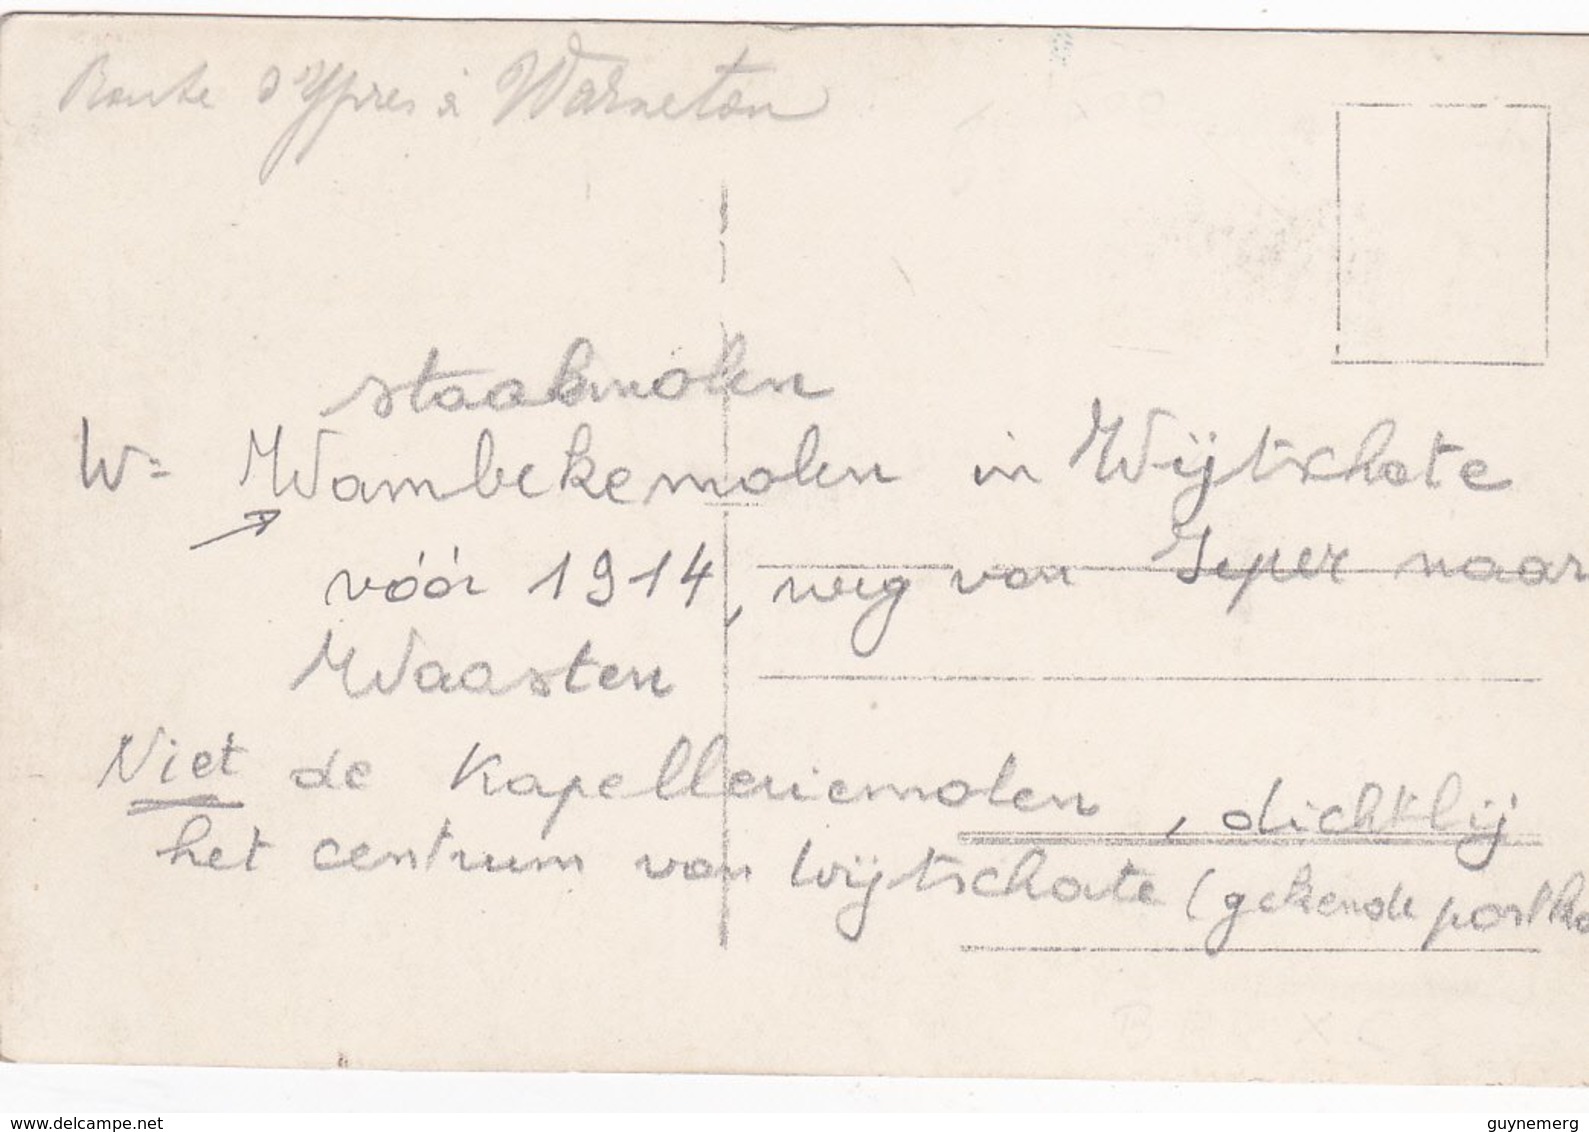 Route d'Ypres à Warneton
staakmolen
W= Wambekemolen in Wijtschate
vóór 1914, weg van Ieper naar
Waasten
Niet de Kapelleriemolen, dichtbij
het centrum van Wijtschate (gekende postka
www.delcampe.net
guynemerg